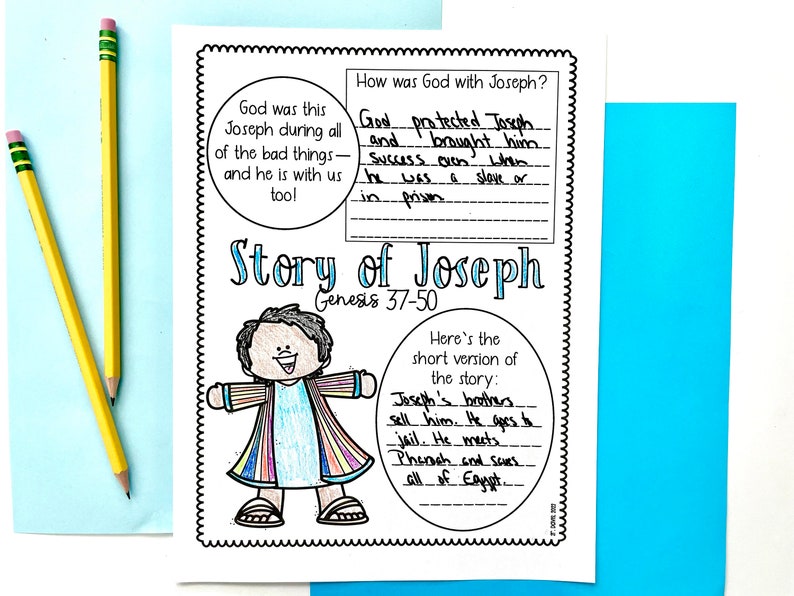 God was this
Joseph during all
of the bad things—
and he is with us
too!
How was God with Joseph?
God protected Joseph
and brought him
success even when
he was a slave or
in prison
Story of Joseph
Genesis 37-50
Here's the
short version of
the story:
Joseph's brothers
sell him. He goes to
jail. He meets
Pharoah and saves
all of Egypt.